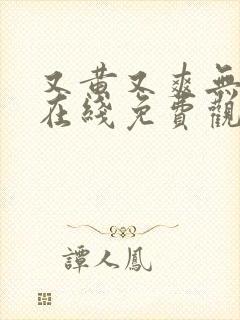 又黄又爽無
在綫免費觀
譚人鳳